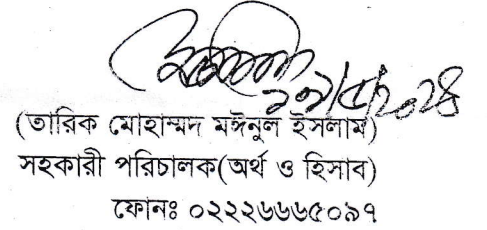 (তারিক মোহাম্মদ মঈনুল ইসলাম)
সহকারী পরিচালক(অর্থ ও হিসাব)
ফোনঃ ০২২২৬৬৬৫০৯৭